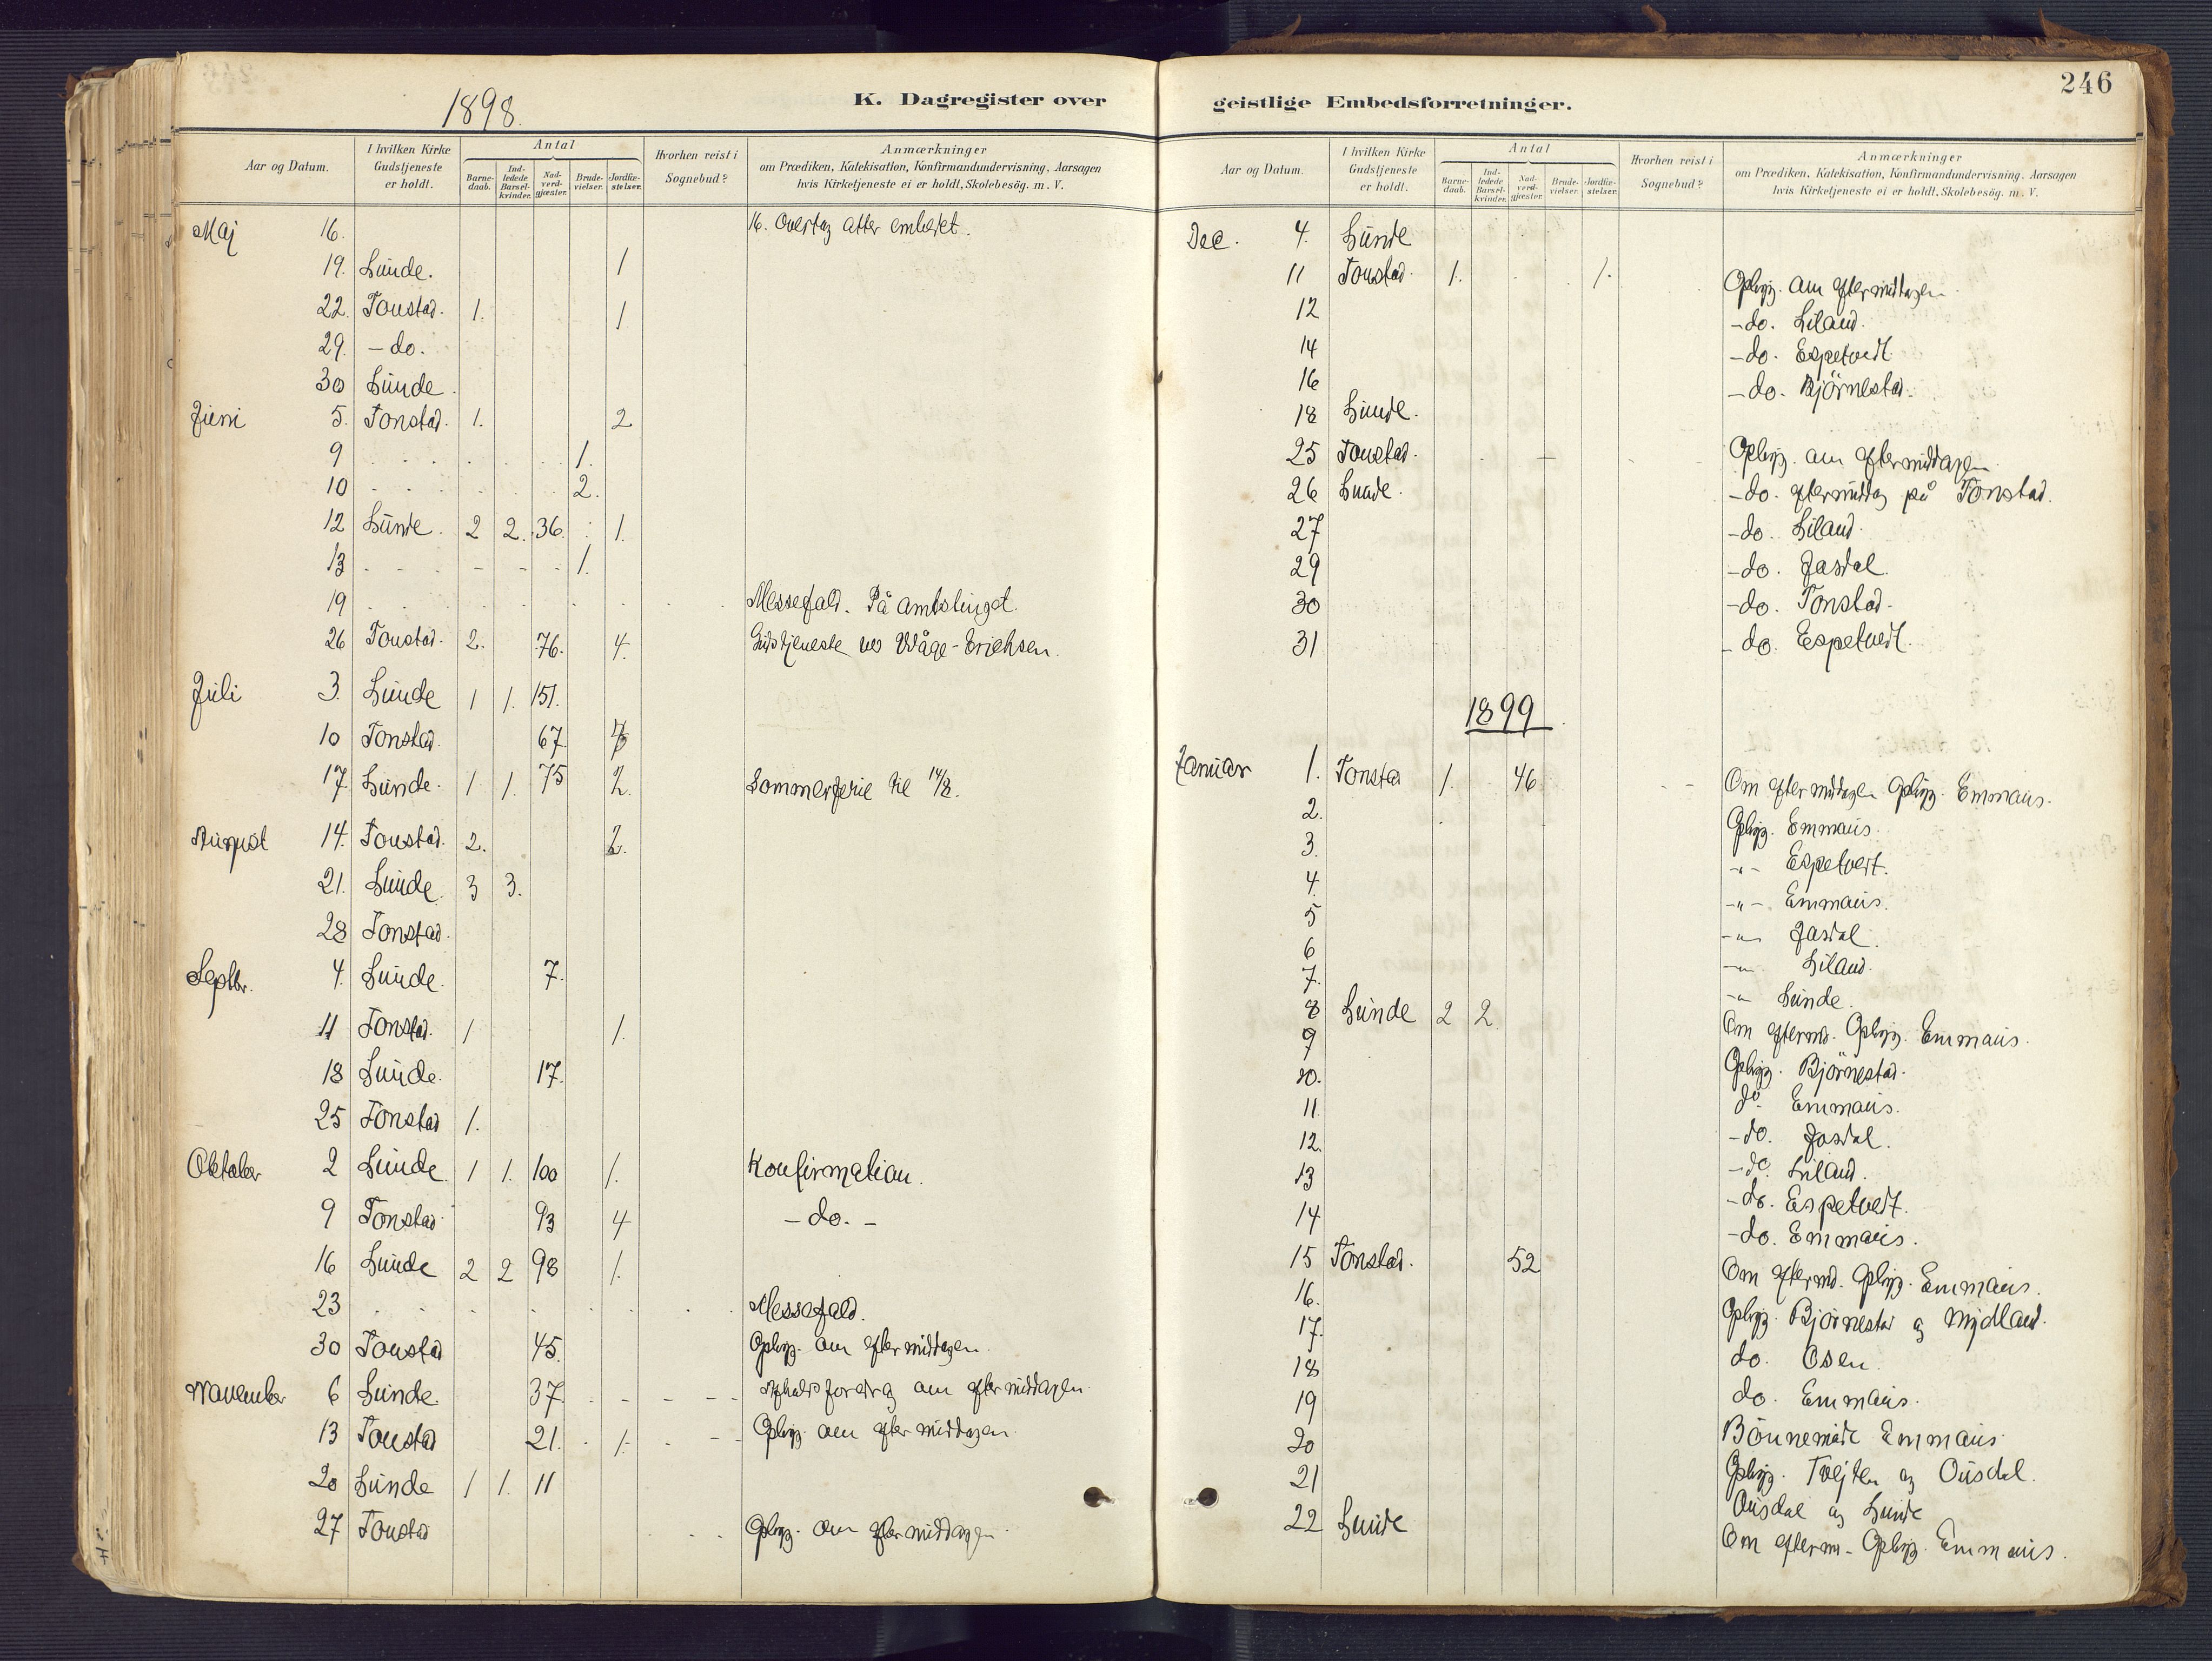 1898.
K. Dagregister over
Aar og Datum. I hvilken Kirke Gudstjeneste er holdt. Antal Barnedaab. Indledede Barselkvinder. Nadverdgjæster. Brudevielser. Jordfæstelser. Hvorhen reist i Sognebud? Anmærkninger om Prædiken, Katekisation, Konfirmandundervisning, Aarsagen hvis Kirketjeneste ei er holdt, Skolebesög. m. V.
Maj 16. 16. Overtog atter embedet.
19. Lunde. 1
22. Tonstad. 1. 1
29. - do.
30 Lunde.
Juni 5. Tonstad. 1. 2
9 1.
10 2.
12 Lunde. 2 2. 36. 1.
13 1.
19 Messefald. På amtstinget.
26 Tonstad. 2. 76. 4. Gudstjeneste ved Wåge-Erichsen.
Juli 3. Lunde 1 1. 151.
10 Tonstad. 67.
17. Lunde. 1 1. 75 2. Sommerferie til 14/8.
August 14. Tonstad. 2. 2.
21. Lunde. 3 3.
28 Tonstad.
Septbr. 4. Lunde. 7.
11 Tonstad. 1 1.
18 Lunde. 17.
25 Tonstad 1.
Oktober 2 Lunde. 1 1. 100 1. Konfirmation.
9 Tonstad 93 4 - do. -
16 Lunde 2 2 98 1.
23 Messefald.
30 Tonstad 45. Opbyg. om eftermiddagen.
November 6 Lunde. 37. foredrag om eftermiddagen.
13 Tonstad 21. 1. Opbyg. om eftermiddagen.
20 Lunde 1 1. 11
27 Tonstad Opbyg. om eftermiddagen.
246
geistlige Embedsforretninger.
Aar og Datum. I hvilken Kirke Gudstjeneste er holdt. Antal Barnedaab. Indledede Barselkvinder. Nadverdgjæster. Brudevielser. Jordfæstelser. Hvorhen reist i Sognebud? Anmærkninger om Prædiken, Katekisation, Konfirmandundervisning, Aarsagen hvis Kirketjeneste ei er holdt, Skolebesög. m. V.
Dec. 4. Lunde
11 Tonstad. 1. 1. Opbyg. om eftermiddagen.
12 - do. Liland.
14 - do. Espetvedt
16 - do. Björnestad.
18 Lunde.
25 Tonstad. Opbyg. om eftermiddagen
26 Lunde. - do. eftermiddag på Tonstad.
27 - do. Liland.
29 - do. Josdal.
30 - do. Tonstad.
31 - do. Espetvedt.
1899
Januar 1. Tonstad 1. 46 Om eftermiddagen Opbyg. Emmaus.
2. Opbyg. Emmaus.
3. -"- Espetvedt.
4. -"- Emmaus.
5 -"- Josdal.
6 -"- Liland.
7. -"- Lunde.
8 Lunde 2 2. Om efterm. Opbyg. Emmaus.
9 Opbyg. Björnestad.
10. do. Emmaus.
11. - do. Josdal.
12. - do. Liland.
13 - do. Espetvedt.
14 - do. Emmaus.
15 Tonstad. 52 Om efterm. Opbyg. Emmaus.
16. Opbyg. Björnestad og Mydland.
17. do. Osen.
18 do. Emmaus.
19 Bönnemöde Emmaus
20 Opbyg. Tvejten og Ousdal.
21 Ousdal og Lunde
22 Lunde Om efterm. Opbyg. Emmaus.